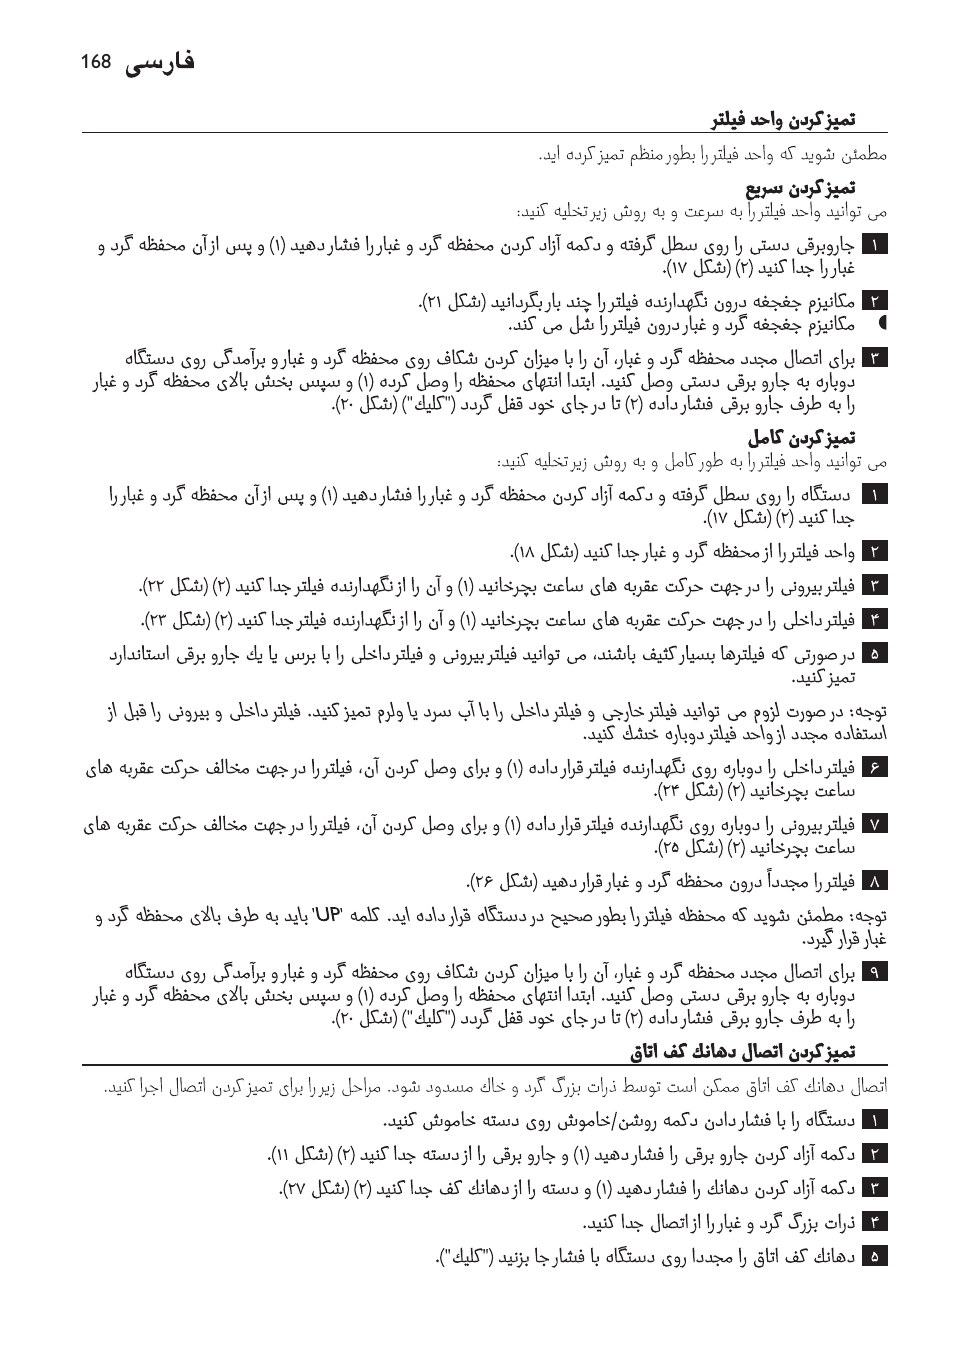 فارسی 168
تمیزکردن واحد فیلتر
مطمئن شوید که واحد فیلتر را بطور منظم تمیز کرده اید.
تمیزکردن سریع
می توانید واحد فیلتر را به سرعت و به روش زیر تخلیه کنید:
۱ جاروبرقی دستی را روی سطل گرفته و دکمه آزاد کردن محفظه گرد و غبار را فشار دهید (۱) و پس از آن محفظه گرد و
غبار را جدا کنید (۲) (شکل ۱۷).
۲ مکانیزم جغجغه درون نگهدارنده فیلتر را چند بار بگردانید (شکل ۲۱).
◖ مکانیزم جغجغه گرد و غبار درون فیلتر را شل می کند.
۳ برای اتصال مجدد محفظه گرد و غبار، آن را با میزان کردن شکاف روی محفظه گرد و غبار و برآمدگی روی دستگاه
دوباره به جارو برقی دستی وصل کنید. ابتدا انتهای محفظه را وصل کرده (۱) و سپس بخش بالای محفظه گرد و غبار
را به طرف جارو برقی فشار داده (۲) تا در جای خود قفل گردد ("کلیك") (شکل ۲۰).
تمیزکردن کامل
می توانید واحد فیلتر را به طور کامل و به روش زیر تخلیه کنید:
۱ دستگاه را روی سطل گرفته و دکمه آزاد کردن محفظه گرد و غبار را فشار دهید (۱) و پس از آن محفظه گرد و غبار را
جدا کنید (۲) (شکل ۱۷).
۲ واحد فیلتر را از محفظه گرد و غبار جدا کنید (شکل ۱۸).
۳ فیلتر بیرونی را در جهت حرکت عقربه های ساعت بچرخانید (۱) و آن را از نگهدارنده فیلتر جدا کنید (۲) (شکل ۲۲).
۴ فیلتر داخلی را در جهت حرکت عقربه های ساعت بچرخانید (۱) و آن را از نگهدارنده فیلتر جدا کنید (۲) (شکل ۲۳).
۵ در صورتی که فیلترها بسیار کثیف باشند، می توانید فیلتر بیرونی و فیلتر داخلی را با برس یا یك جارو برقی استاندارد
تمیز کنید.
توجه: در صورت لزوم می توانید فیلتر خارجی و فیلتر داخلی را با آب سرد یا ولرم تمیز کنید. فیلتر داخلی و بیرونی را قبل از
استفاده مجدد از واحد فیلتر دوباره خشك کنید.
۶ فیلتر داخلی را دوباره روی نگهدارنده فیلتر قرار داده (۱) و برای وصل کردن آن، فیلتر را در جهت مخالف حرکت عقربه های
ساعت بچرخانید (۲) (شکل ۲۴).
۷ فیلتر بیرونی را دوباره روی نگهدارنده فیلتر قرار داده (۱) و برای وصل کردن آن، فیلتر را در جهت مخالف حرکت عقربه های
ساعت بچرخانید (۲) (شکل ۲۵).
۸ فیلتر را مجدداً درون محفظه گرد و غبار قرار دهید (شکل ۲۶).
توجه: مطمئن شوید که محفظه فیلتر را بطور صحیح در دستگاه قرار داده اید. کلمه 'UP' باید به طرف بالای محفظه گرد و
غبار قرار گیرد.
۹ برای اتصال مجدد محفظه گرد و غبار، آن را با میزان کردن شکاف روی محفظه گرد و غبار و برآمدگی روی دستگاه
دوباره به جارو برقی دستی وصل کنید. ابتدا انتهای محفظه را وصل کرده (۱) و سپس بخش بالای محفظه گرد و غبار
را به طرف جارو برقی فشار داده (۲) تا در جای خود قفل گردد ("کلیك") (شکل ۲۰).
تمیزکردن اتصال دهانك کف اتاق
اتصال دهانك کف اتاق ممکن است توسط ذرات بزرگ گرد و خاك مسدود شود. مراحل زیر را برای تمیز کردن اتصال اجرا کنید.
۱ دستگاه را با فشار دادن دکمه روشن/خاموش روی دسته خاموش کنید.
۲ دکمه آزاد کردن جارو برقی را فشار دهید (۱) و جارو برقی را از دسته جدا کنید (۲) (شکل ۱۱).
۳ دکمه آزاد کردن دهانك را فشار دهید (۱) و دسته را از دهانك کف جدا کنید (۲) (شکل ۲۷).
۴ ذرات بزرگ گرد و غبار را از اتصال جدا کنید.
۵ دهانك کف اتاق را مجددا روی دستگاه با فشار جا بزنید ("کلیك").